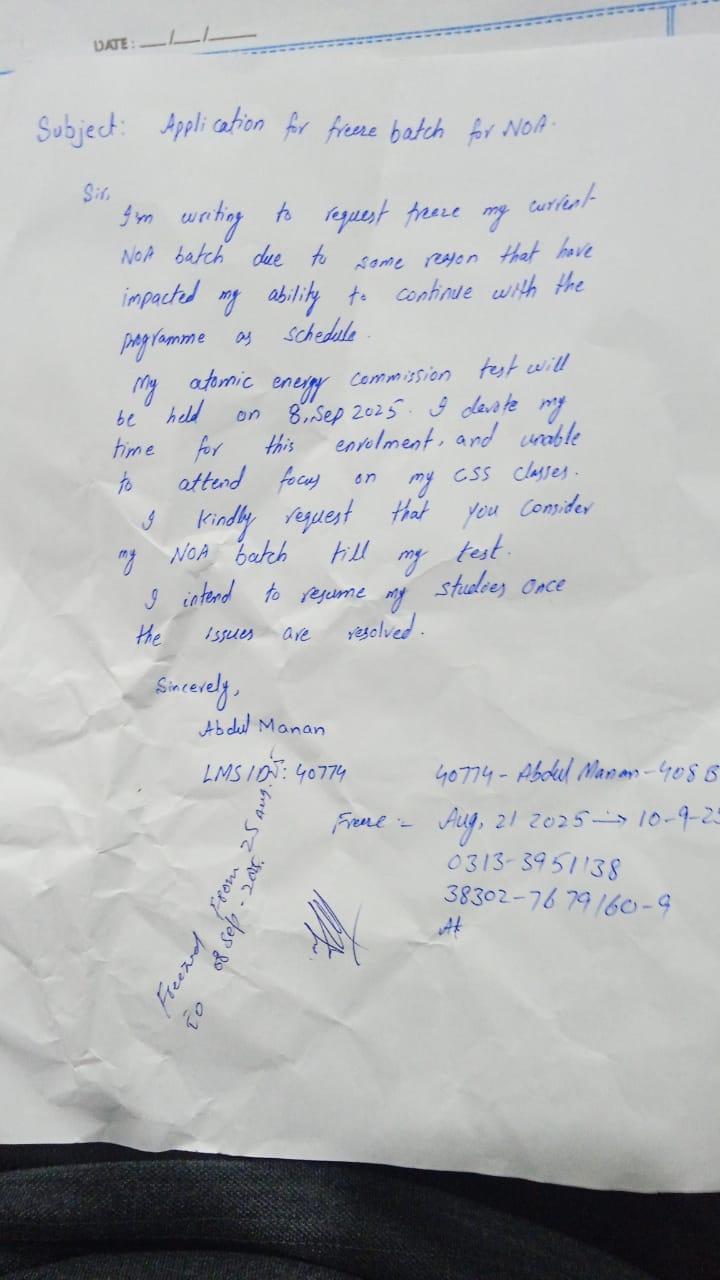 DATE: __/__/__
Subject: Application for freeze batch for NOA.
Sir,
I'm writing to request freeze my current
NOA batch due to some reason that have
impacted my ability to continue with the
programme as schedule.
My atomic energy commission test will
be held on 8, Sep 2025. I devote my
time for this enrolment, and unable
to attend focus on my CSS classes.
I kindly request that you consider
my NOA batch till my test.
I intend to resume my studies once
the issues are resolved.
Sincerely,
Abdul Manan
LMS ID: 40774
40774 - Abdul Manan - 408 B
Freeze :- Aug, 21 2025 → 10-9-25
0313-3951138
38302-7679160-9
Freezed From 25 Aug.
to 08 Sep - 2025.